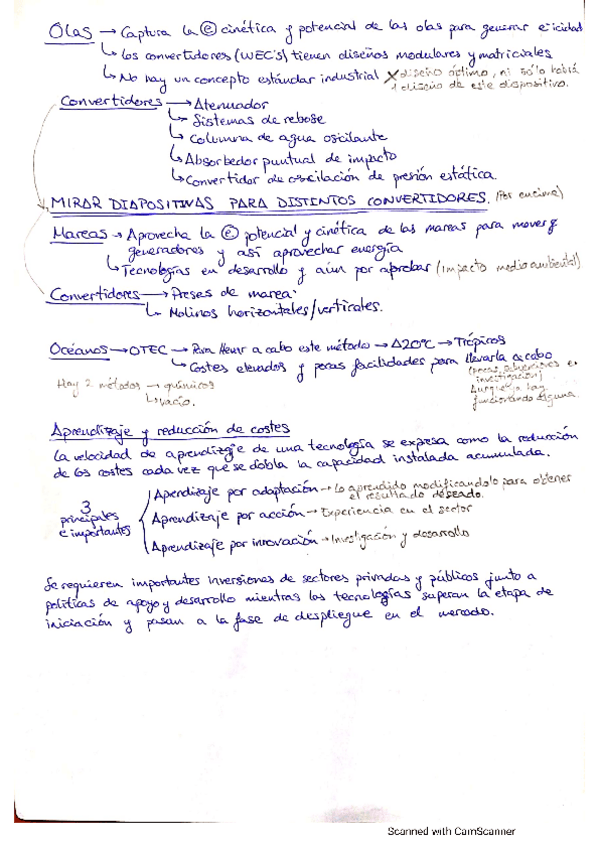 Olas → Captura la ⓔ cinética y potencial de las olas para generar e⁻icidad
↳ Los convertidores (WEC's) tienen diseños modulares y matriciales
↳ No hay un concepto estándar industrial X diseño óptimo, ni sólo habrá
1 diseño de este dispositivo.
Convertidores → Atenuador
↳ Sistemas de rebose
↳ Columna de agua oscilante
↳ Absorbedor puntual de impacto
↳ Convertidor de oscilación de presión estática.
MIRAR DIAPOSITIVAS PARA DISTINTOS CONVERTIDORES. (Por encima)
Mareas → Aprovecha la ⓔ potencial y cinética de las mareas para mover
generadores y así aprovechar energía
↳ Tecnologías en desarrollo y aún por aprobar (Impacto medioambiental)
Convertidores → Presas de marea.
↳ Molinos horizontales/verticales.
Océanos → OTEC → Para llevar a cabo este método → Δ20ºC → Trópicos
↳ Costes elevados y pocas facilidades para llevarla a cabo
Hay 2 métodos → químicos
↳ vacío.
investigación)
Aunque ya hay
funcionando alguna.
Aprendizaje y reducción de costes
La velocidad de aprendizaje de una tecnología se expresa como la reducción
de los costes cada vez que se dobla la capacidad instalada acumulada.
3
principales
e importantes
Aperdizaje por adaptación → Lo aprendido modificandolo para obtener
el resultado deseado.
Aprendizaje por acción → Experiencia en el sector
Aprendizaje por innovación → Investigación y desarrollo
Se requieren importantes inversiones de sectores privados y públicos junto a
políticas de apoyo y desarrollo mientras las tecnologías superan la etapa de
iniciación y pasan a la fase de despliegue en el mercado.
Scanned with CamScanner